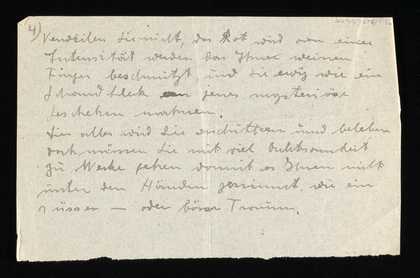 4) Verweilen Sie nicht, das Rot wird von einer
Intensität werden das Ihnen weinen
Finger beschmutzt, und Sie ewig wie ein
Schandfleck an jenes mysteriöse
Geschehen mahnen.
Dies alles wird Sie erschüttern und beleben
doch müssen Sie mit viel Behutsamkeit
zu Werke gehen damit es Ihnen nicht
unter den Händen zerrinnt, wie ein
süsser — oder böser Traum.